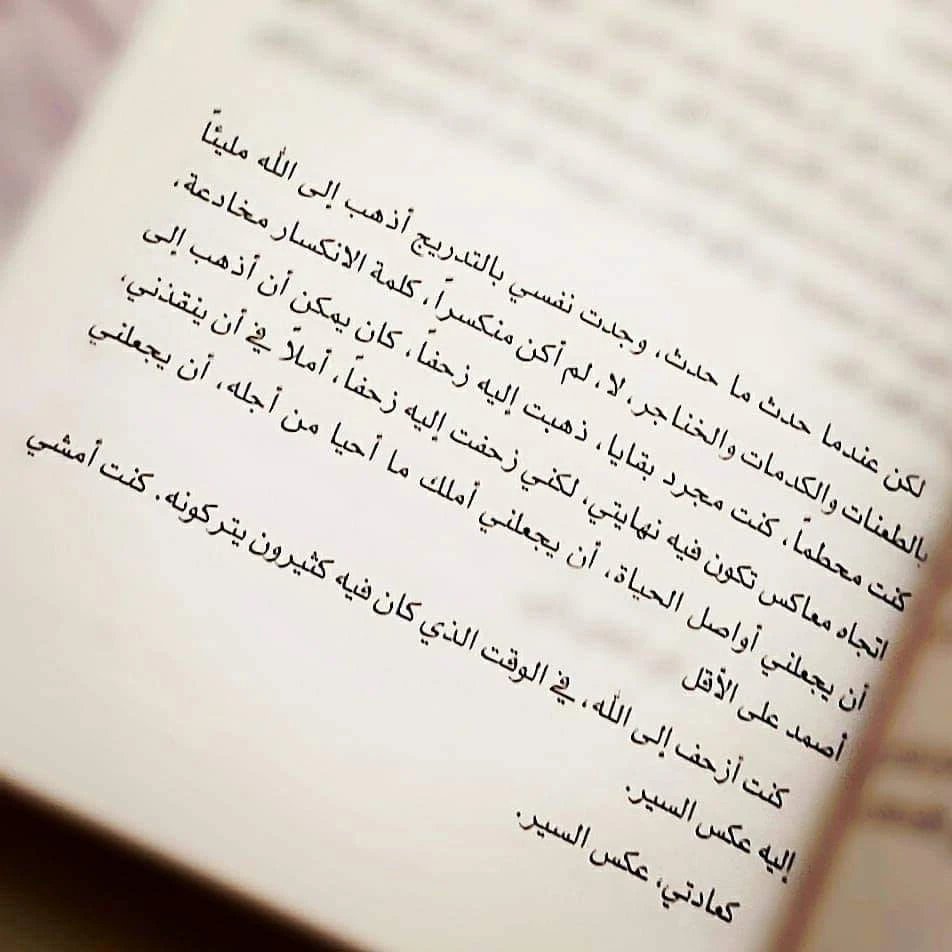 لكن عندما حدث ما حدث، وجدت نفسي بالتدريج أذهب إلى الله مليئاً
بالطعنات والكدمات والخناجر، لا، لم أكن منكسراً، كلمة الانكسار مخادعة،
كنت محطماً، كنت مجرد بقايا، ذهبت إليه زحفاً، كان يمكن أن أذهب إلى
اتجاه معاكس تكون فيه نهايتي، لكني زحفت إليه زحفاً، أملاً في أن ينقذني،
أن يجعلني أواصل الحياة، أن يجعلني أملك ما أحيا من أجله، أن يجعلني
أصمد على الأقل
كنت أزحف إلى الله، في الوقت الذي كان فيه كثيرون يتركونه. كنت أمشي
إليه عكس السير.
كعادتي، عكس السير.